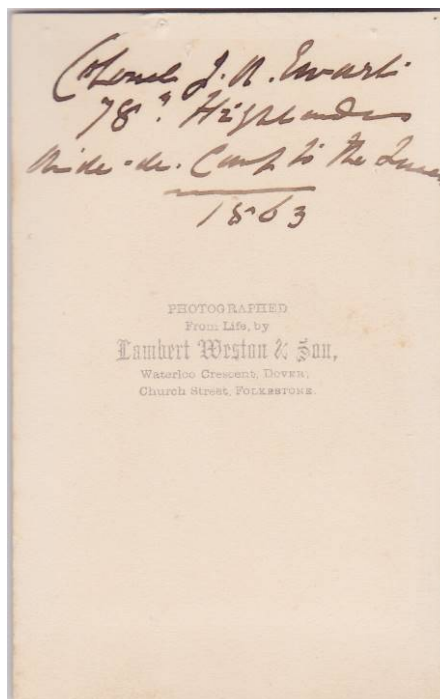 Colonel J. A. Ewart
78th Highlanders
Aide-de-Camp to the Queen
1863
PHOTOGRAPHED
From Life, by
Lambert Weston & Son,
Waterloo Crescent, DOVER;
Church Street, FOLKESTONE.